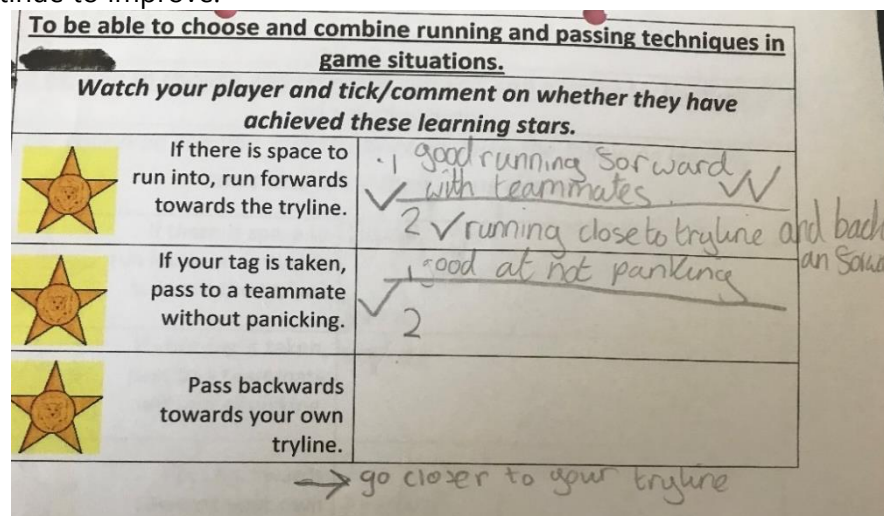 tinue to improve.
To be able to choose and combine running and passing techniques in
game situations.
Watch your player and tick/comment on whether they have
achieved these learning stars.
If there is space to
run into, run forwards
towards the tryline.
1 good running forward
with teammates.
2 ✓ running close to tryline and back
an
If your tag is taken,
pass to a teammate
without panicking.
1 good at not panking
2
Pass backwards
towards your own
tryline.
→ go closer to your tryline